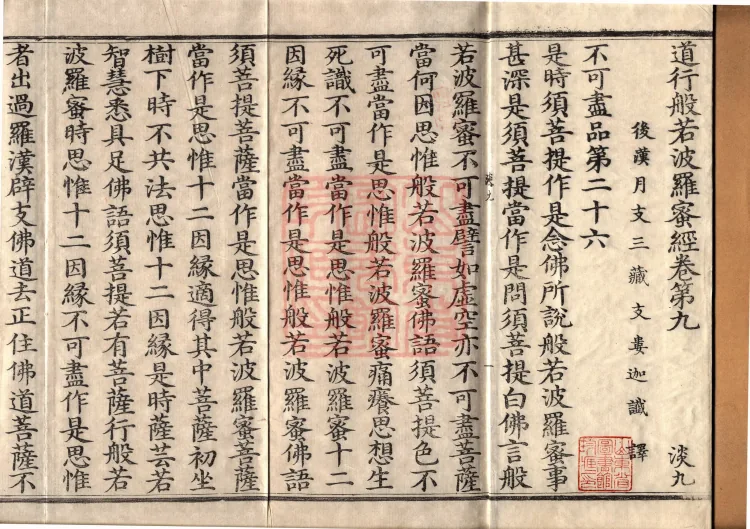 道行般若波羅蜜經卷第九 淡九
後漢月支三藏支婁迦讖譯
不可盡品第二十六
是時須菩提作是念佛所說般若波羅蜜事
甚深是須菩提當作是問須菩提白佛言般
淡九
若波羅蜜不可盡譬如虛空亦不可盡菩薩
當何因思惟般若波羅蜜佛語須菩提色不
可盡當作是思惟般若波羅蜜痛癢思想生
死識不可盡當作是思惟般若波羅蜜十二
因緣不可盡當作是思惟般若波羅蜜佛語
須菩提菩薩當作是思惟般若波羅蜜菩薩
當作是思惟十二因緣適得其中菩薩初坐
樹下時不共法思惟十二因緣是時薩芸若
智慧悉具足佛語須菩提若有菩薩行般若
波羅蜜時思惟十二因緣不可盡作是思惟
者出過羅漢辟支佛道去正住佛道菩薩不